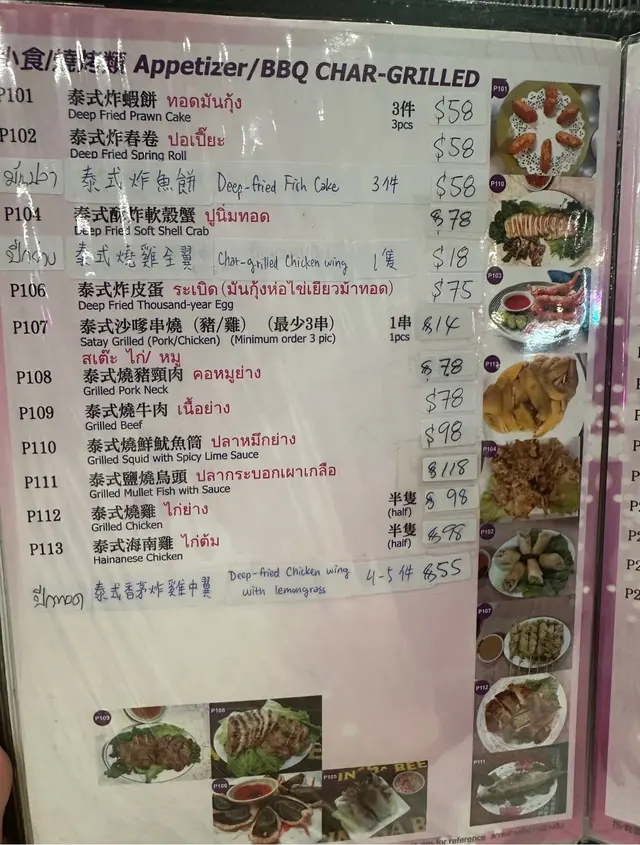 小食/燒烤類 Appetizer/BBQ CHAR-GRILLED
P101 泰式炸蝦餅 ทอดมันกุ้ง 3件 $58
Deep Fried Prawn Cake 3pcs
P102 泰式炸春卷 ปอเปี๊ยะ $58
Deep Fried Spring Roll
泰式炸魚餅 Deep-fried Fish Cake 3件 $58
P104 泰式酥炸軟殼蟹 ปูนิ่มทอด $78
Deep Fried Soft Shell Crab
ปีกย่าง 泰式燒雞全翼 Char-grilled Chicken wing 1隻 $18
P106 泰式炸皮蛋 ระเบิด (มันกุ้งห่อไข่เยียวม้าทอด) $75
Deep Fried Thousand-year Egg
P107 泰式沙嗲串燒 (豬/雞) (最少3串) 1串 $14
Satay Grilled (Pork/Chicken) (Minimum order 3 pic) 1pcs
สเต๊ะ ไก่/ หมู
P108 泰式燒豬頸肉 คอหมูย่าง $78
Grilled Pork Neck
P109 泰式燒牛肉 เนื้อย่าง $78
Grilled Beef
P110 泰式燒鮮魷魚筒 ปลาหมึกย่าง $98
Grilled Squid with Spicy Lime Sauce
P111 泰式鹽燒烏頭 ปลากระบอกเผาเกลือ $118
Grilled Mullet Fish with Sauce
P112 泰式燒雞 ไก่ย่าง 半隻 $98
Grilled Chicken (half)
P113 泰式海南雞 ไก่ต้ม 半隻 $98
Hainanese Chicken (half)
ปีกทอด 泰式香茅炸雞中翼 Deep-fried Chicken wing with lemongrass 4-5件 $55
P101
P110
P103
P113
P104
P102
P107
P112
P111
P109
P108
P106
P105
for reference